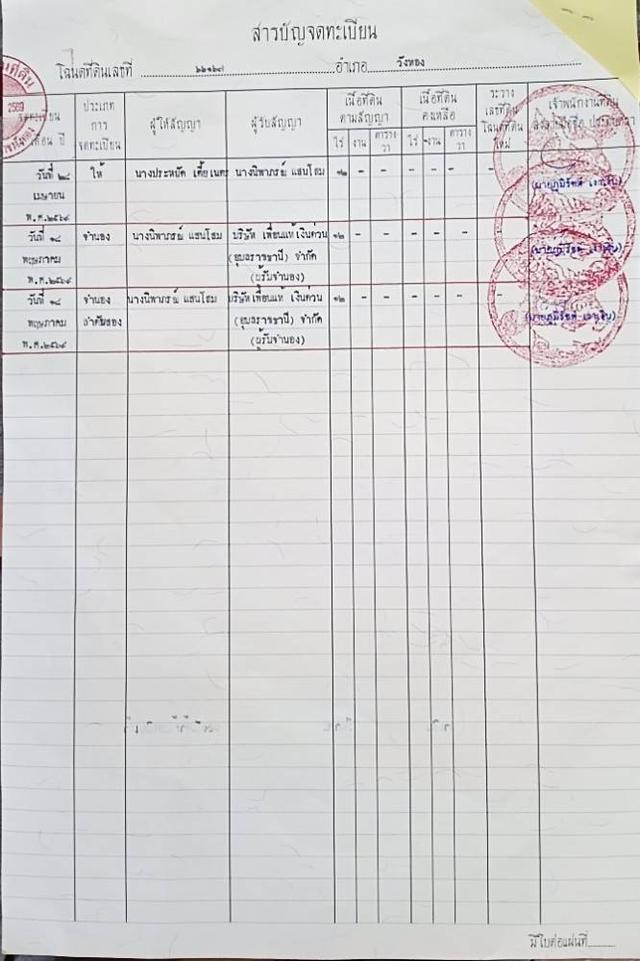 สารบัญจดทะเบียน
โฉนดที่ดินเลขที่ อำเภอ วังทอง
จดทะเบียน
เดือน ปี
ประเภท
การ
จดทะเบียน
ผู้ให้สัญญา
ผู้รับสัญญา
เนื้อที่ดิน
ตามสัญญา
ไร่ งาน ตาราง
วา
เนื้อที่ดิน
คงเหลือ
ไร่ งาน ตาราง
วา
ระวาง
เลขที่ดิน
โฉนดที่ดิน
ใหม่
เจ้าพนักงานที่ดิน
วันที่ ๒๘ ให้ นางประหยัด นางนิพาภรณ์ แสนโฮม ๑๒ - - - - - -
เมษายน
พ.ศ.๒๕๖๙
วันที่ ๑๘ จำนอง นางนิพาภรณ์ แสนโฮม บริษัท เพื่อนแท้ เงินด่วน ๑๒ - - - - - -
พฤษภาคม (อุบลราชธานี) จำกัด
พ.ศ.๒๕๖๙ (ผู้รับจำนอง)
วันที่ ๑๘ จำนอง นางนิพาภรณ์ แสนโฮม บริษัท เพื่อนแท้ เงินด่วน ๑๒ - - - - - -
พฤษภาคม ลำดับสอง (อุบลราชธานี) จำกัด
พ.ศ.๒๕๖๙ (ผู้รับจำนอง)
มีใบต่อแผ่นที่